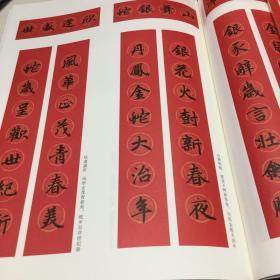 山舞銀蛇
銀花火樹新春夜
丹鳳金蛇大治年
欣逢盛世
風華正茂青春美
蛇歲呈觀世紀新
辭歲言壯